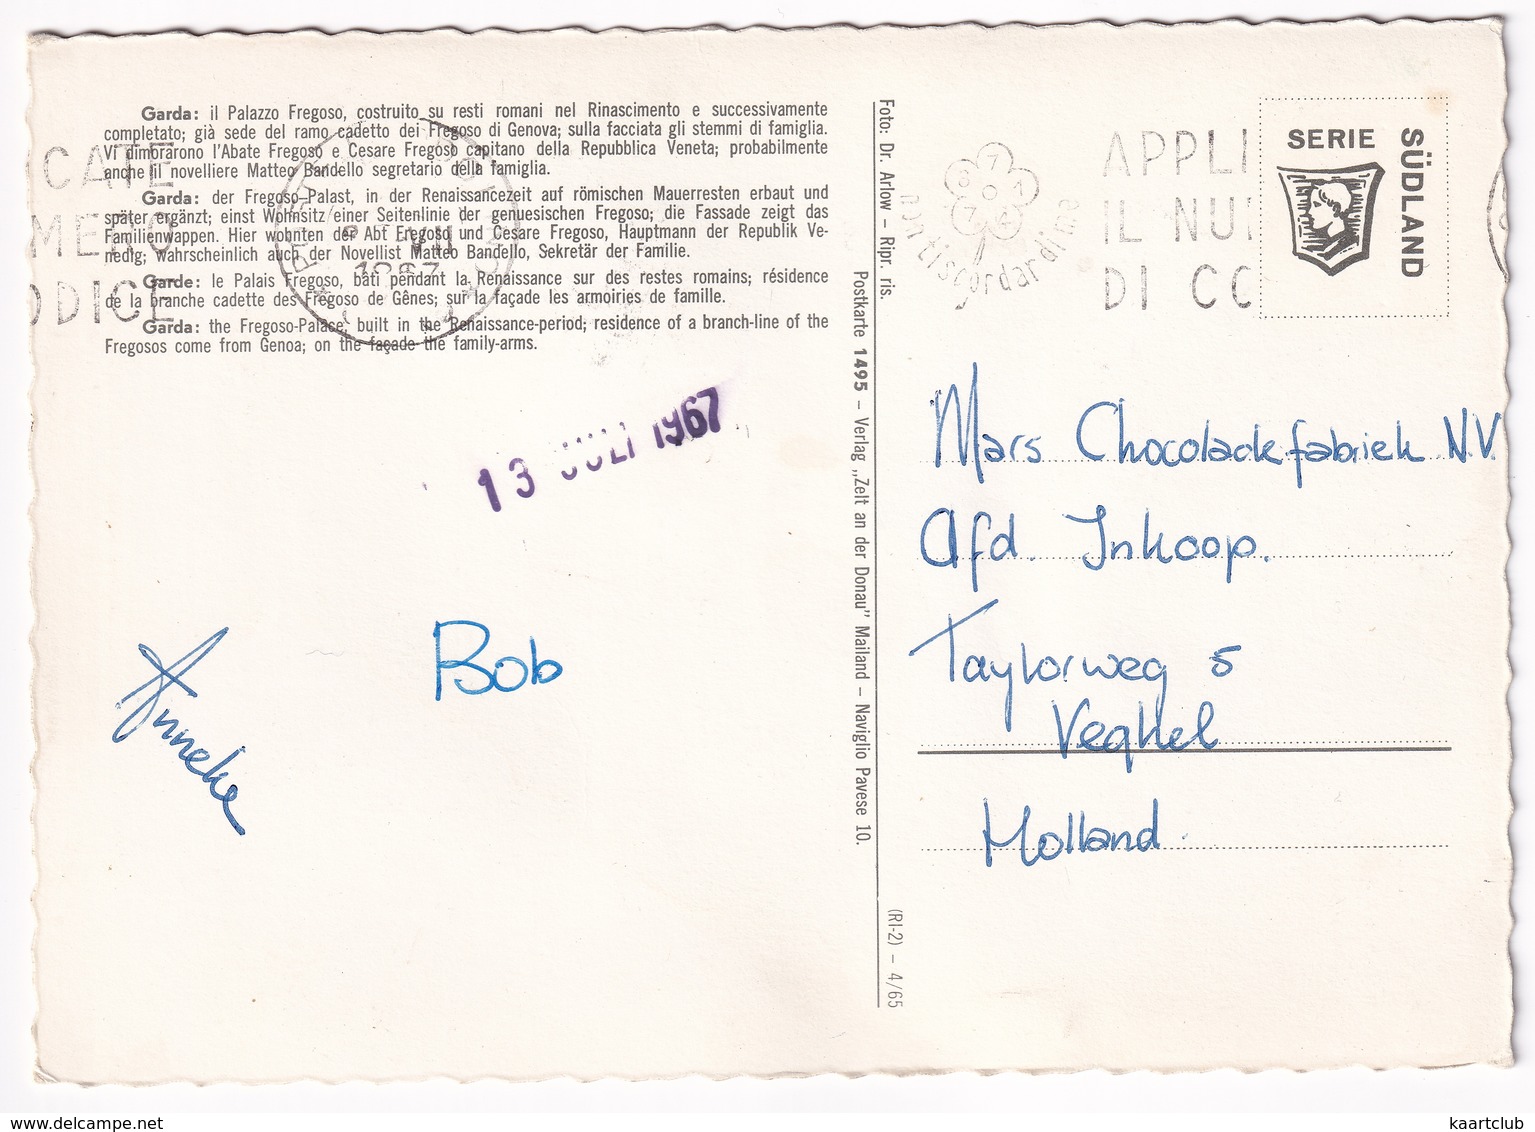 Garda: il Palazzo Fregoso, costruito su resti romani nel Rinascimento e successivamente
completato; già sede del ramo cadetto dei Fregoso di Genova; sulla facciata gli stemmi di famiglia.
Vi dimorarono l'Abate Fregoso e Cesare Fregoso capitano della Repubblica Veneta; probabilmente
anche il novelliere Matteo Bandello segretario della famiglia.
Garda: der Fregoso-Palast, in der Renaissancezeit auf römischen Mauerresten erbaut und
später ergänzt; einst Wohnsitz einer Seitenlinie der genuesischen Fregoso; die Fassade zeigt das
Familienwappen. Hier wohnten der Abt Fregoso und Cesare Fregoso, Hauptmann der Republik Ve-
nedig; wahrscheinlich auch der Novellist Matteo Bandello, Sekretär der Familie.
Garde: le Palais Fregoso, bâti pendant la Renaissance sur des restes romains; résidence
de la branche cadette des Fregoso de Gênes; sur la façade les armoiries de famille.
Garda: the Fregoso-Palace, built in the Renaissance-period; residence of a branch-line of the
Fregosos come from Genoa; on the façade the family-arms.
CATE
MERO
ODICE
13 JULI 1967
Anneke
Bob
Foto: Dr. Arlow – Ripr. ris.
Postkarte 1495 – Verlag „Zelt an der Donau" Mailand – Naviglio Pavese 10.
(RI-2) – 4/65
nontiscordardime
APPLI
IL NU
DI CO
SERIE
SÜDLAND
Mars Chocoladefabriek N.V.
Afd. Inkoop.
Taylorweg 5
Veghel
Holland.
kaartclub